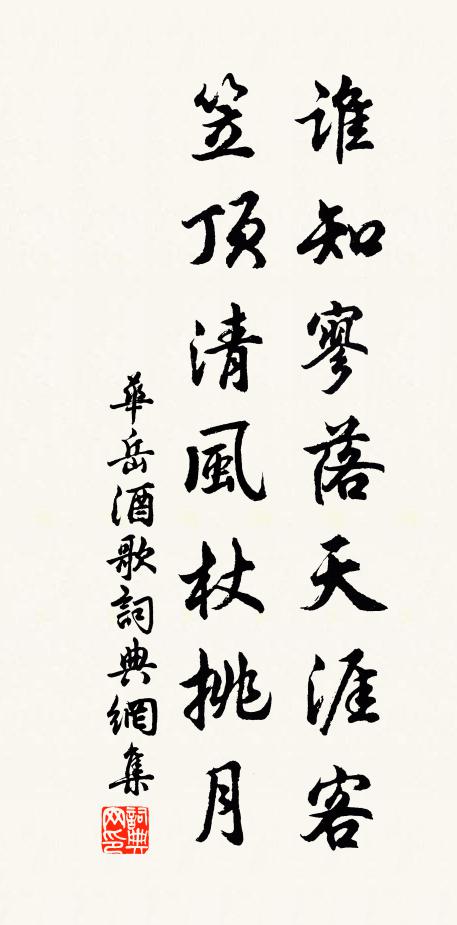 谁知寥落天涯客
笠顶清風杖挑月
華岳酒歌詞典網集
詞典
网印